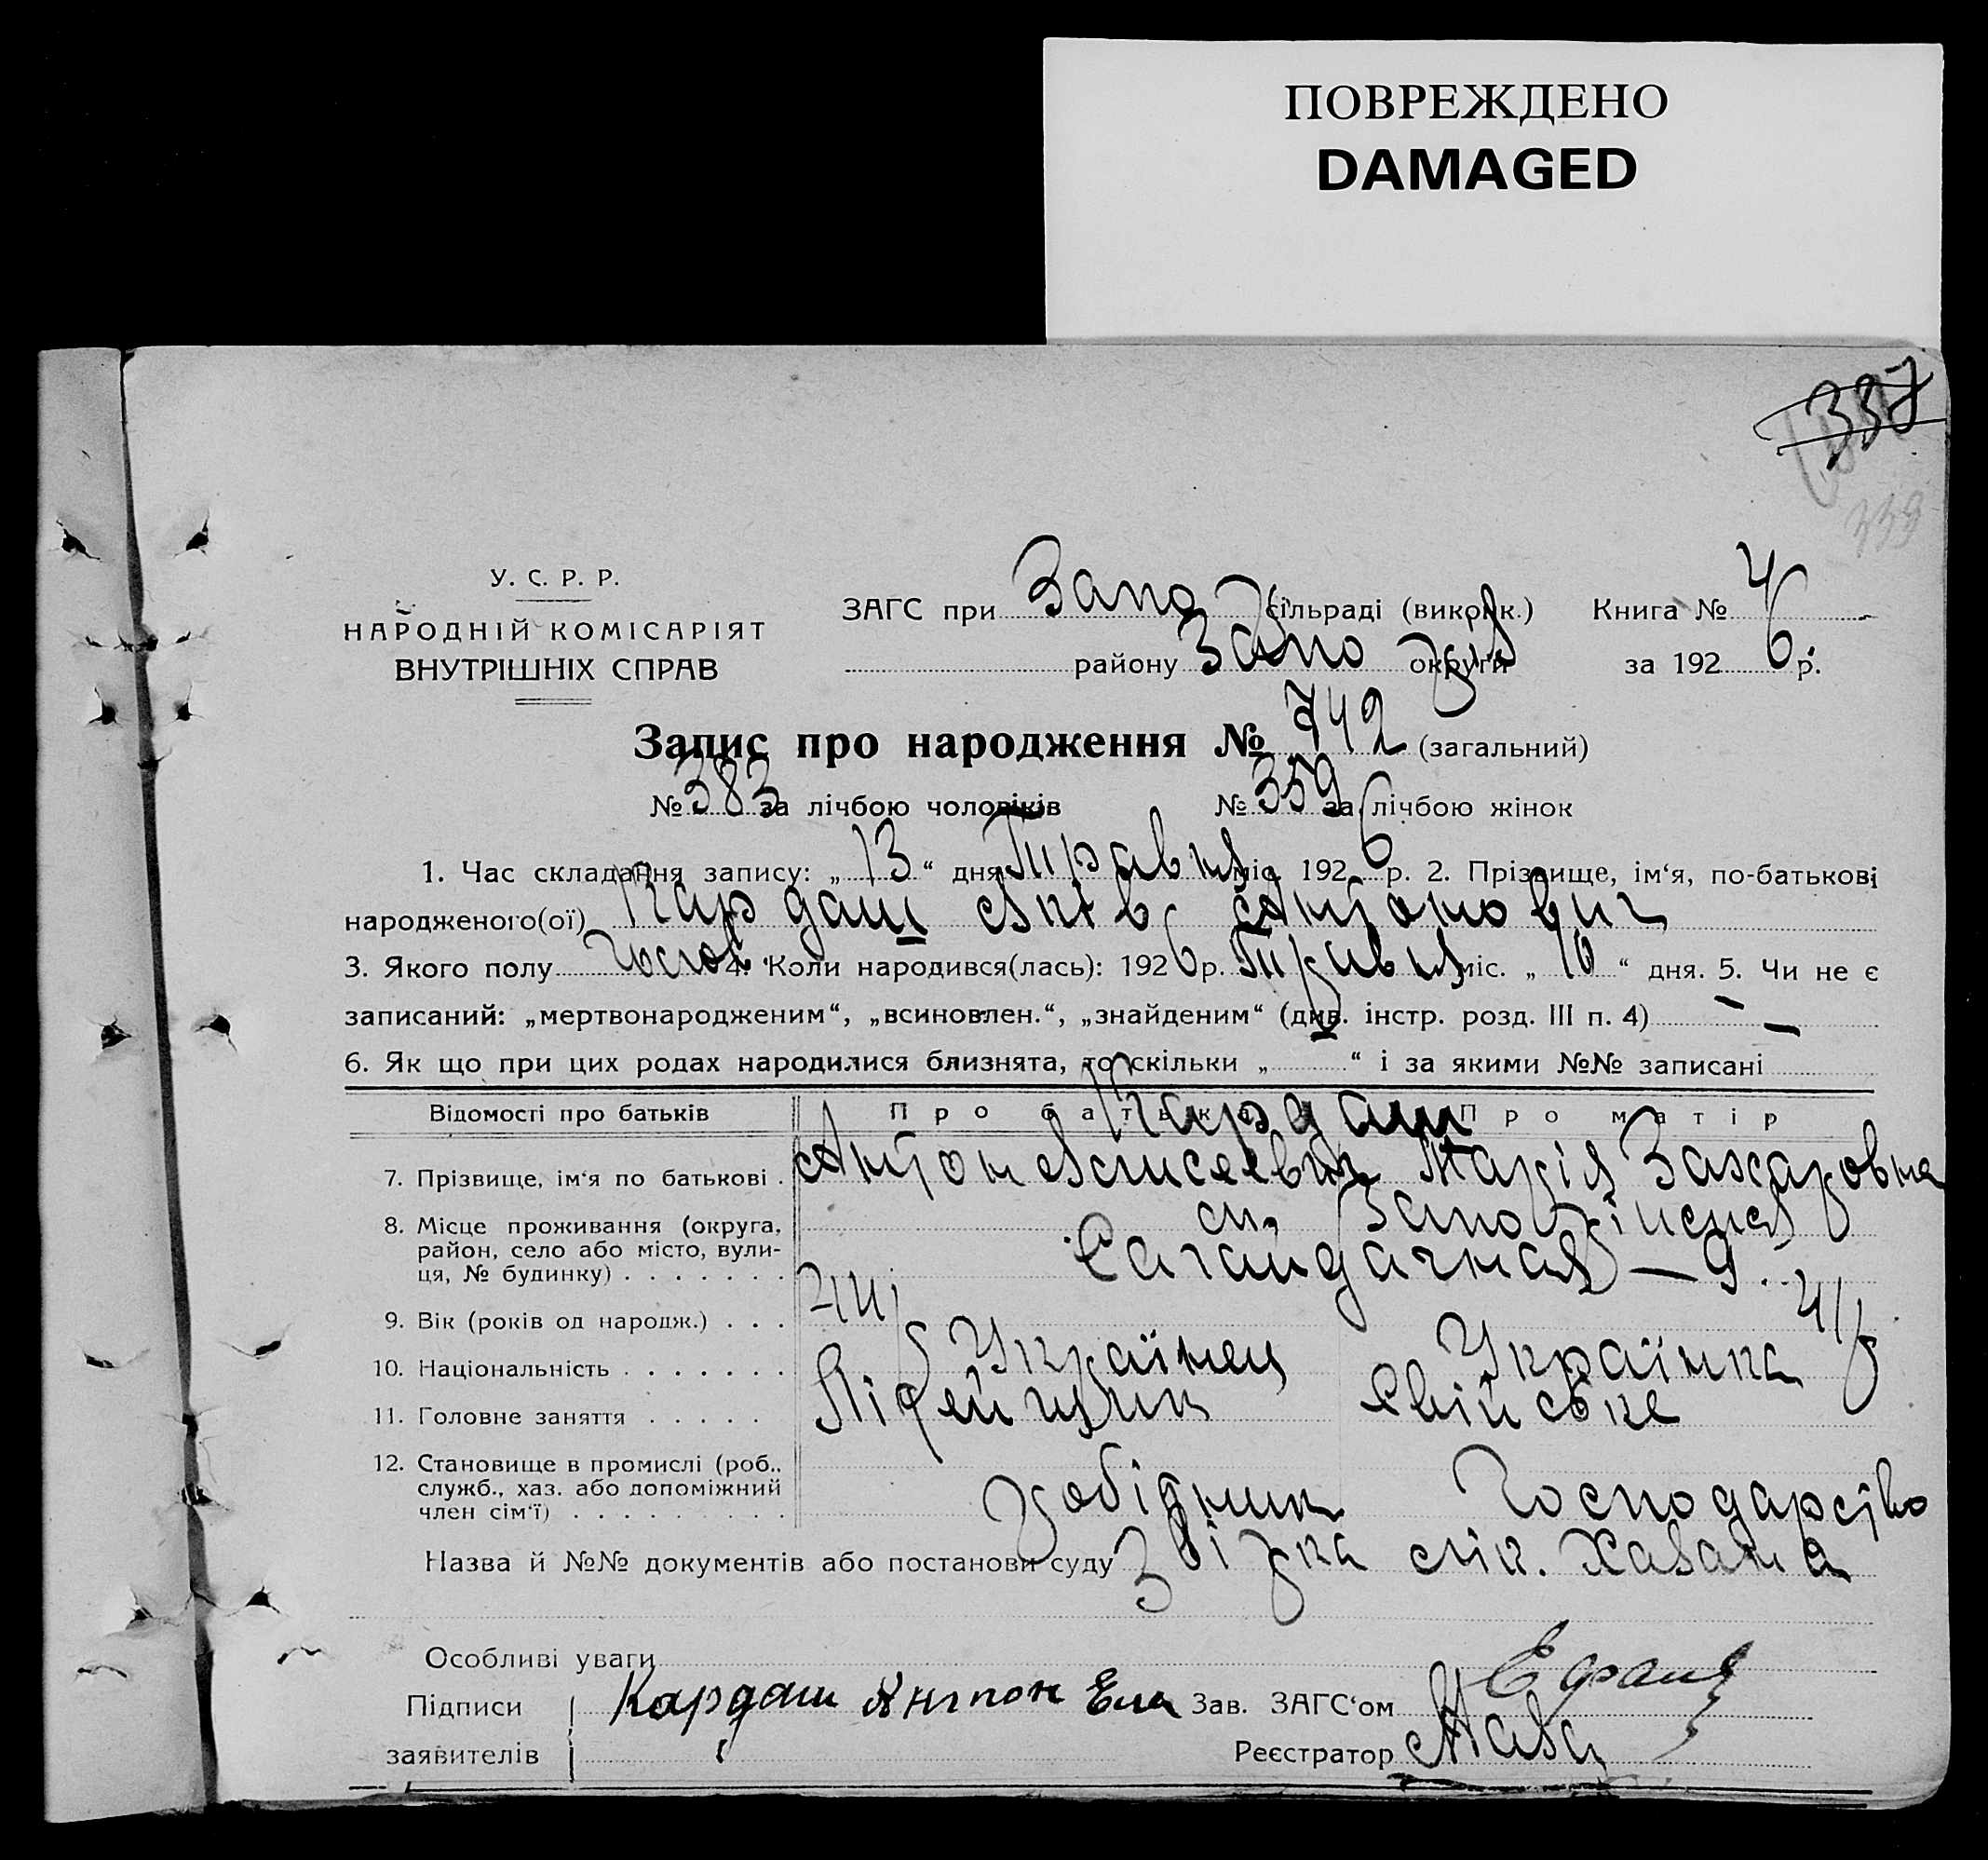 ПОВРЕЖДЕНО
DAMAGED
337
339
У. С. Р. Р.
НАРОДНІЙ КОМІСАРІЯТ
ВНУТРІШНІХ СПРАВ
ЗАГС при Запо сільраді (викон.к.) Книга № 4
району Запо округи за 192 6 р.
Запис про народження № 742 (загальний)
№ 383 за лічбою чоловіків № 359 за лічбою жінок
1. Час складання запису: „ 13 “ дня Травня міс. 192 6 р. 2. Прізвище, ім‘я, по-батькові
народженого(ої) Кардаш Антонович
3. Якого полу 4. Коли народився(лась): 192 6 р. Травня міс. „ 10 “ дня. 5. Чи не є
записаний: „мертвонародженим“, „всиновлен.“, „знайденим“ (див. інстр. розд. III п. 4) —
6. Як що при цих родах народилися близнята, то скільки „ — “ і за якими №№ записані —
Відомості про батьків Про батька Про матір
Кардаш
7. Прізвище, ім‘я по батькові . Антон Елисеевич Марія Захаровна
8. Місце проживання (округа, район, село або місто, вулиця, № будинку) . . . . . . . Сагайдачная — 9.
9. Вік (років од народж.) . . . 44 41
10. Національність . . . . . . . Українец Українка
11. Головне заняття . . . . . Ліфейщик
12. Становище в промислі (роб., служб., хаз. або допоміжний член сім‘ї) . . . . . . . . . робітник Господарство
Назва й №№ документів або постанови суду Звістка лік. Хазана
Особливі уваги
Підписи Кардаш Антон Ели Зав. ЗАГС‘ом
заявителів Реєстратор